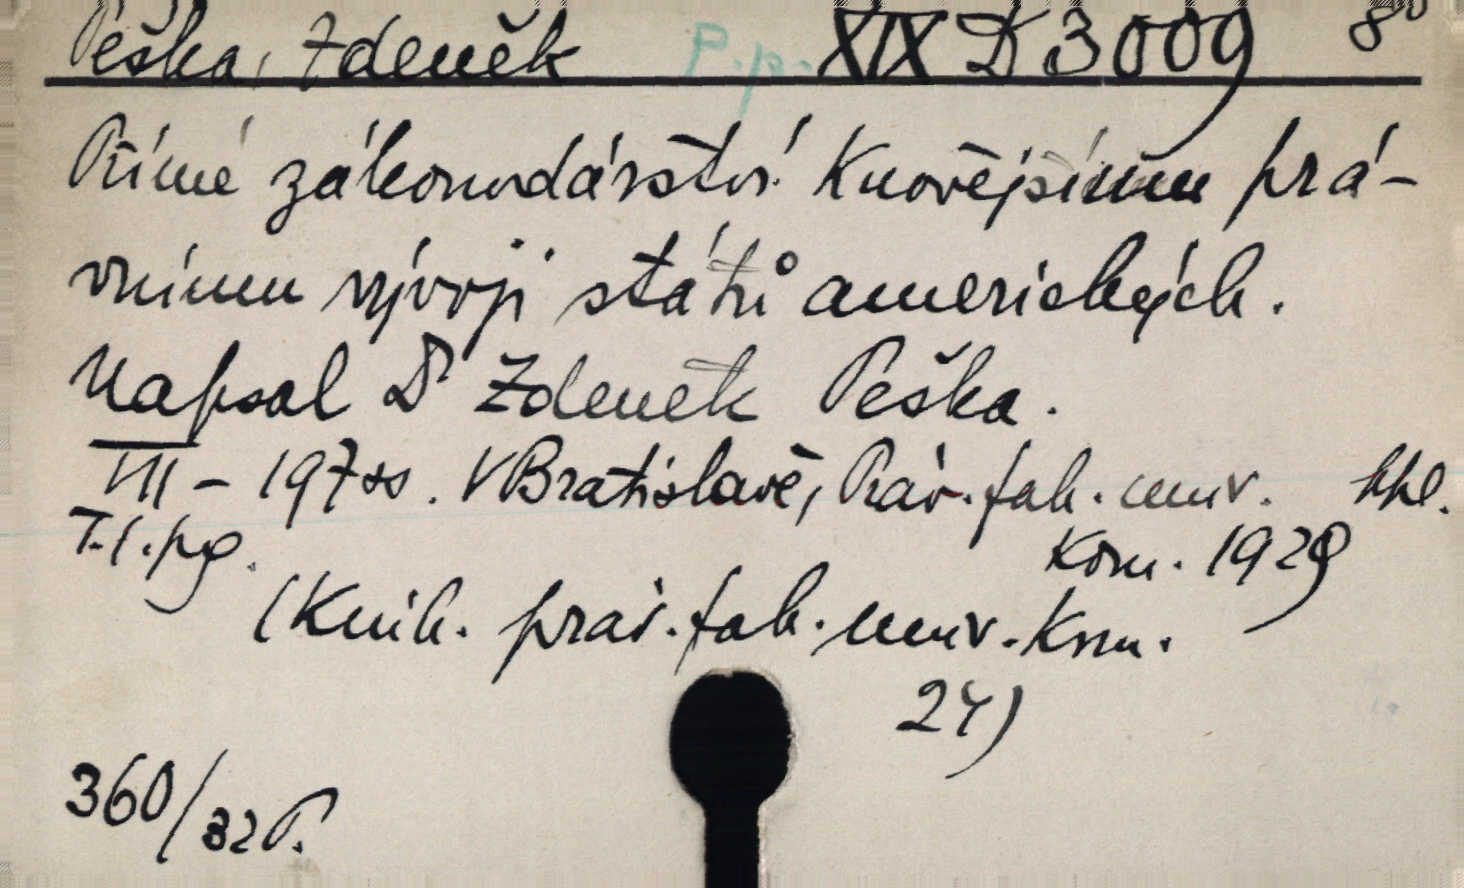 Peška, Zdeněk P.p. XIX D 3009 8⁰
Přímé zákonodárství. K novějšímu prá-
vnímu vývoji států amerických.
Napsal Dr Zdeněk Peška.
VII - 197 ss. V Bratislavě, Práv. fak. univ. kpl.
T.I. pg. Kom. 1929
(Knih. práv. fak. univ. Kom.
24)
360/32 P.